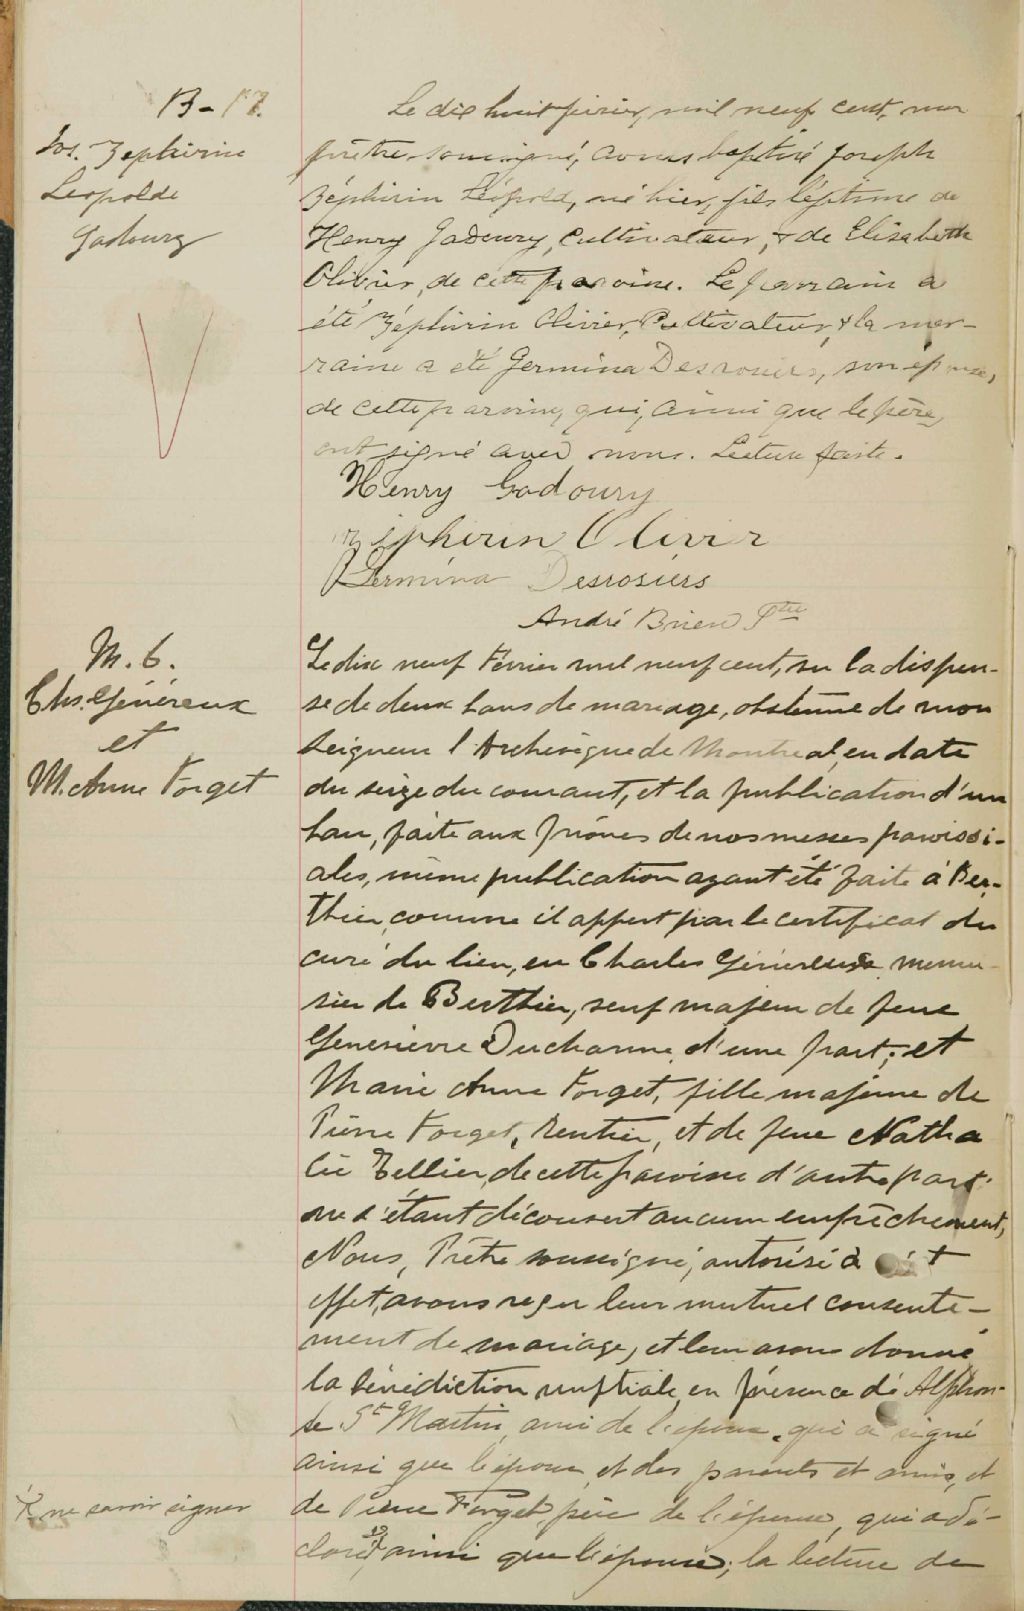 B-17.
Jos. Zephirin
Leopolde
Gadoury
Le dix huit février, mil neuf cent, nous
prêtre soussigné, avons baptisé Joseph
Zéphirin Léopold, né hier, fils légitime de
Henry Gadoury, cultivateur, & de Elisabeth
Olivier, de cette paroisse. Le parrain a
été Zéphirin Olivier, Cultivateur, & la mar-
raine a été Germina Desrosiers, son épouse,
de cette paroisse, qui, ainsi que le père,
ont signé avec nous. Lecture faite.
Henry Gadoury
Zéphirin Olivir
Germina Desrosiers
André Brien Ptre
M. 6.
Chs. Généreux
et
M. Anne Forget
Le dix neuf Février mil neuf cent, vu la dispen-
se de deux bans de mariage, obtenue de mon
seigneur l'Archevêque de Montreal, en date
du seize du courant, et la publication d'un
ban, faite aux prônes de nos messes paroissi-
ales, même publication ayant été faite à Ber-
thier, comme il appert par le certificat du
curé du lieu, en Charles Généreux menui-
sier de Berthier, veuf majeur de feue
Genevieve Ducharme d'une part; et
Marie Anne Forget, fille majeure de
Pierre Forget, Rentier, et de feue Natha
lie Tellier, de cette paroisse d'autre part
ne s'étant découvert aucun empêchement,
Nous, Prêtre soussigné, autorisé à cet
effet, avons reçu leur mutuel consente-
ment de mariage, et leur avons donné
la bénédiction nuptiale en présence de Alphon-
se St Martin, ami de l'époux, qui a signé
ainsi que l'époux et des parents et amis, et
de Pierre Forget père de l'épouse, qui a dé-
claré ainsi que l'épouse, la lecture de
X ne savoir signer